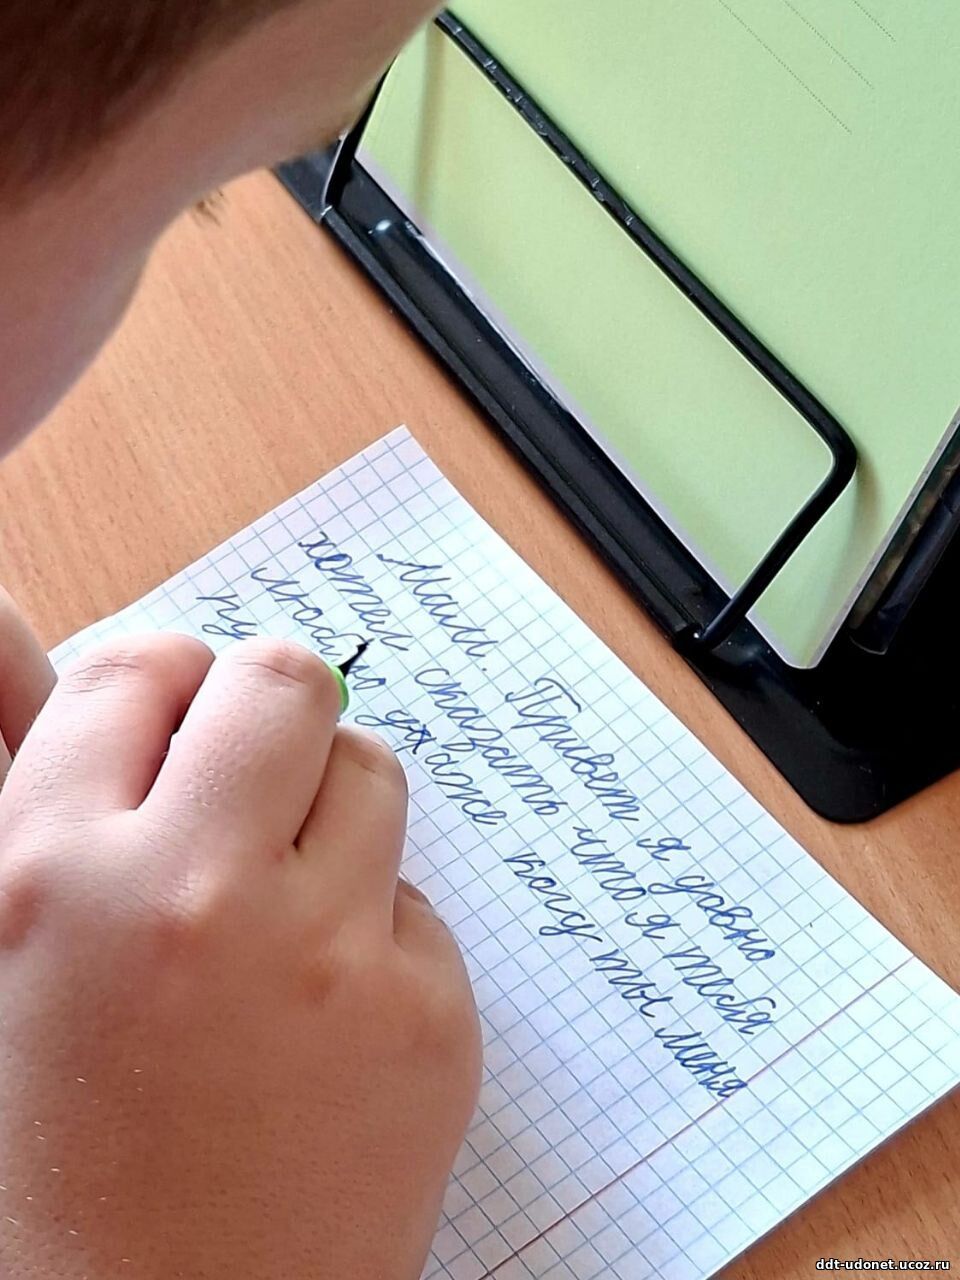 Мам. Привет я давно
хотел сказать что я тебя
люблю даже когу ты меня
ddt-udonet.ucoz.ru